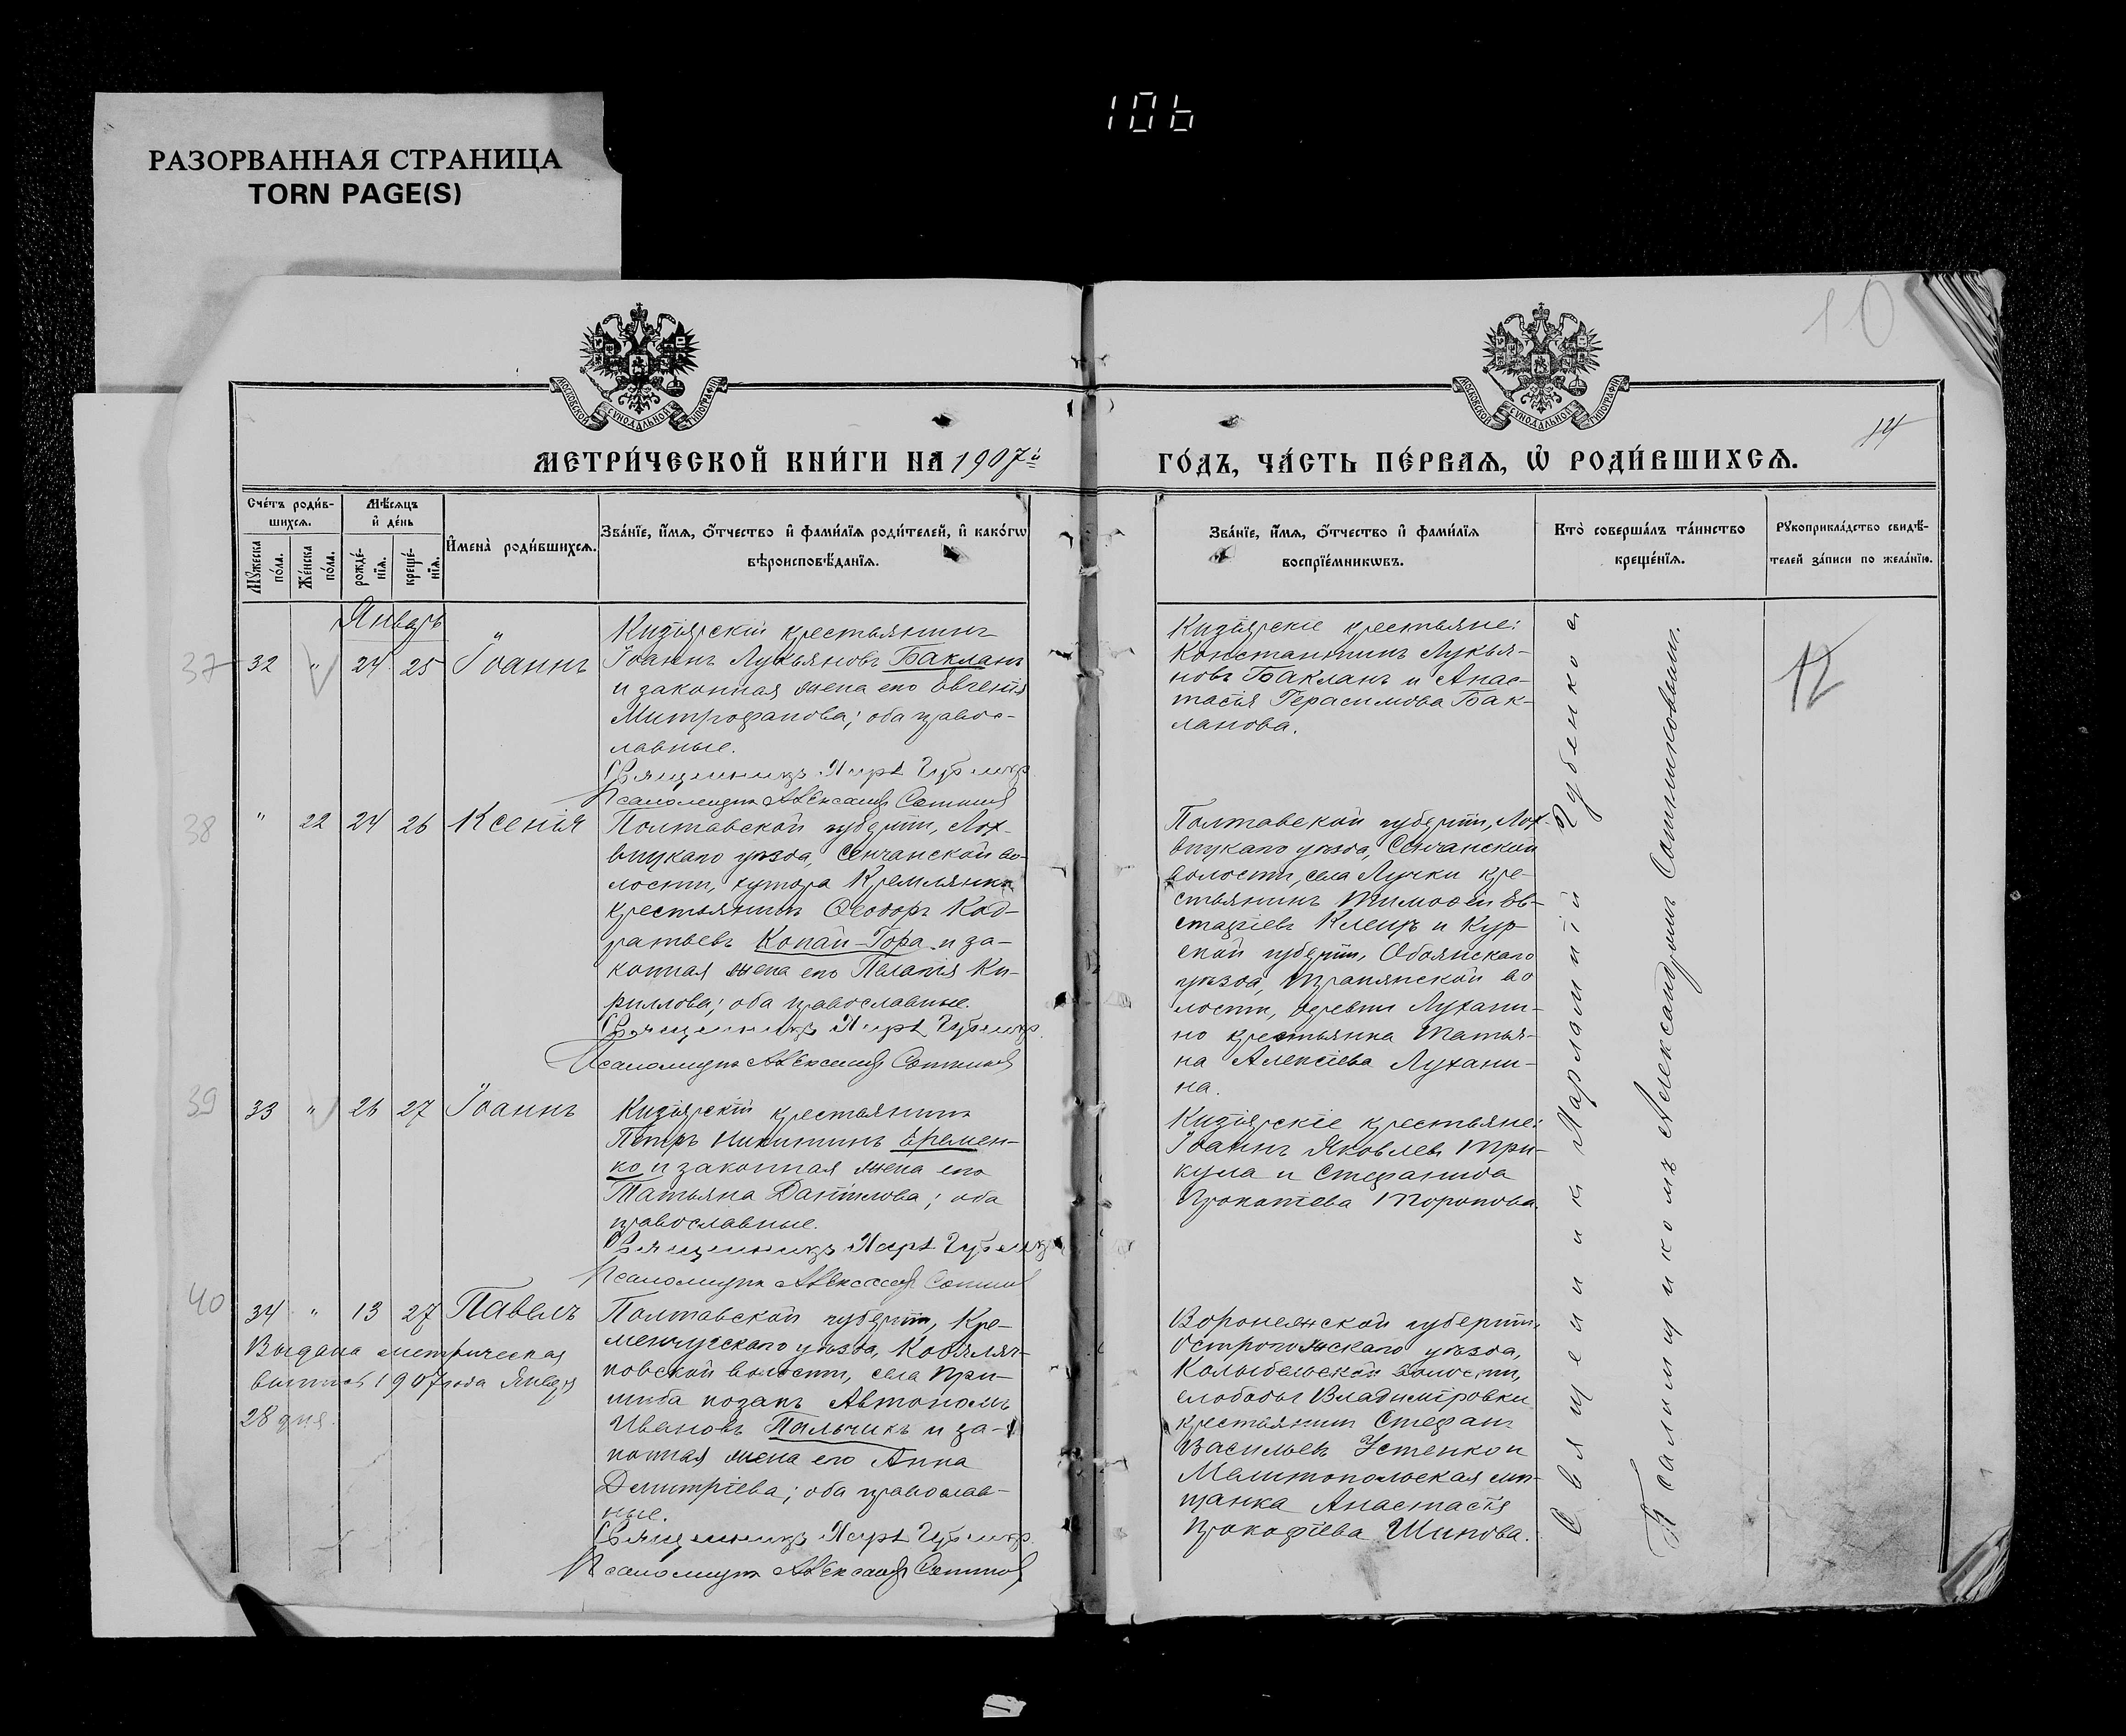 106
РАЗОРВАННАЯ СТРАНИЦА
TORN PAGE(S)
10
МОСКОВСКОЙ СѴНОДАЛЬНОЙ ТИПОГРАФІИ
МОСКОВСКОЙ СѴНОДАЛЬНОЙ ТИПОГРАФІИ
14
МЕТРИ́ЧЕСКОЙ КНИ́ГИ НА 1907й
ГО́ДЪ, ЧА́СТЬ ПЕ́РВАѦ, Ѡ҆ РОДИ́ВШИХСѦ.
Сче́тъ роди́в-
шихсѧ.
Мꙋ́жеска по́ла.
Же́нска по́ла.
Мѣ́сѧцъ
и҆ де́нь
рожде́-
нїѧ.
креще́-
нїѧ.
И҆мена̀ роди́вшихсѧ.
Зва́нїе, и҆́мѧ, ѻ҆́тчество и҆ фами́лїѧ роди́телей, и҆ како́гѡ
вѣроисповѣ́данїѧ.
Зва́нїе, и҆́мѧ, ѻ҆́тчество и҆ фами́лїѧ
воспрїе́мникѡвъ.
Кто̀ соверша́лъ та́инство
креще́нїѧ.
Рꙋкоприкла́дство свидѣ́-
телей за́писи по жела́нїю.
Январь
37
32 " 24 25 Іоаннъ
Кизіярскій крестьянинъ
Іоаннъ Лукьяновъ Бакланъ
и законная жена его Евгенія
Митрофанова; оба правос-
лавные.
Священникъ Харл Губенко
Псаломщикъ Александр Сотников
Кизіярскіе крестьяне:
Константинъ Лукья-
новъ Бакланъ и Анас-
тасія Герасимова Бак-
ланова.
12
38
" 22 24 26 Ксенія
Полтавской губерніи, Лох-
вицкаго уѣзда, Сенчанской во-
лости, хутора Кремлянка
крестьянинъ Ѳеодоръ Код-
ратьевъ Копай-Гора и за-
конная жена его Пелагія Ки-
риллова; оба православные.
Священникъ Харл Губенко
Псаломщикъ Александр Сотников
Полтавской губерніи, Лох-
вицкаго уѣзда, Сенчанской
волости, села Лучки кре-
стьянинъ Тимоѳей Ев-
стафіевъ Клецъ и Кур-
ской губерніи, Обоянскаго
уѣзда, во
лости, деревни Лухани-
но крестьянка Татья-
на Алексіева Лухани-
на.
39
33 " 26 27 Іоаннъ
Кизіярскій крестьянинъ
Петръ Никитинъ Еремен-
ко и законная жена его
Татьяна Даніилова; оба
православные.
Священникъ Харл Губенко
Псаломщикъ Александр Сотников
Кизіярскіе крестьяне:
Іоаннъ Яковлевъ Три-
кула и Стефанида
Прокопіева Торопова.
40
34 " 13 27 Павелъ
Выдана метрическая
выпись 1907 года Января
28 дня.
Полтавской губерніи, Кре-
менчугскаго уѣзда,
новской волости, села При-
казакъ Автономъ
Ивановъ Пальчикъ и за-
конная жена его Анна
Димитріева; оба православ-
ные.
Священникъ Харл Губенко
Псаломщикъ Александр Сотников
Воронежской губерніи,
Острогожскаго уѣзда,
Колыбельской волости,
слободы Владиміровки
крестьянинъ Стефанъ
Васильевъ Устенко и
Мелитопольская мѣ-
щанка Анастасія
Прокофіева Шипова.
Священникъ Харлампій Губенко с
Псаломщикомъ Александромъ Сотниковымъ.